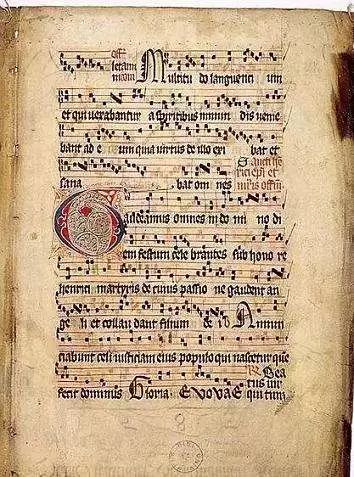 Multitu do languenti um
et qui vexabantur a spiritibus inmun dis venie
bant ad e um quia virtus de illo exi bat et
sana bat om nes
Gaudeamus omnes in do mi no di
em festum cele brantes sub hono re
henrici martyris de cuius passio ne gaudent an
ge li et collau dant filium de i Annun
ciabunt celi iusticiam eius populo qui nascetur que
Bea
tus vir
fecit dominus Gloria EVOVAE qui tim